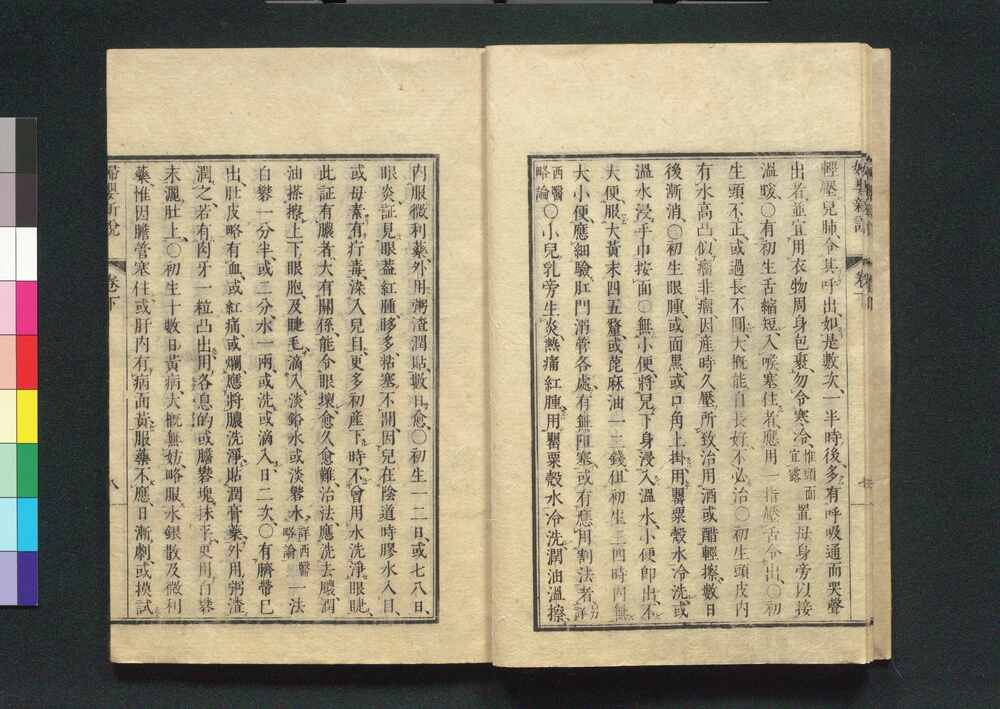 輕壓兒肺、令其呼出、如是數次、一半時後、多有呼吸通而哭聲
出者、並宜用衣物周身包裹、勿令寒冷、惟頭面宜露置母身旁以接
溫煖、〇有初生舌縮短、入喉塞住者、應用一指壓舌令出、〇初
生頭不正、或過長不圓、大概能自長好、不必治、〇初生頭皮內
有水高凸、似瘤非瘤、因産時久壓所致、治用酒或醋輕擦、數日
後漸消、〇初生眼腫或面黑、或口角上掛、用罌粟殼水冷洗、或
溫水浸手巾按面、〇無小便、將兒下身浸入溫水、小便卽出、不
大便、服大黃末四五釐、或萆麻油一二錢、但初生三四時內無
大小便、應細驗肛門溺管各處、有無阻塞、或有應用割法者、詳
西醫略論〇小兒乳旁生炎、熱痛紅腫、用罌粟殼水冷洗、潤油溫擦、
內服微利藥、外用粥渣潤貼、數日愈、〇初生一二日、或七八日、
眼炎、証見眼蓋紅腫、眵多粘塞不開、因兒在陰道時、膠水入目、
或母素有疔毒、染入兒目、更多初産下時、不曾用水洗淨眼睫、
此証有膿者大有關係、能令眼壞、愈久愈難治、法應洗去膿、潤
油搽擦上下眼胞及睫毛、滴入淡鉛水或淡礬水、詳西醫略論一法
白礬一分半、或三分、水一兩、或洗或滴入、日二次、〇有臍帶已
出、肚皮略有血、或紅痛或爛、應將膿洗淨、貼潤膏藥、外用粥渣
潤之、若有肉牙一粒凸出、用各息的或膽礬塊抹平、更用白礬
末灑肚上、〇初生十數日黃病、大概無妨、略服水銀散及微利
藥、惟因膽管塞住、或肝內有病、面黃、服藥不應、日漸劇、或摸試
婦嬰新說　卷下　八